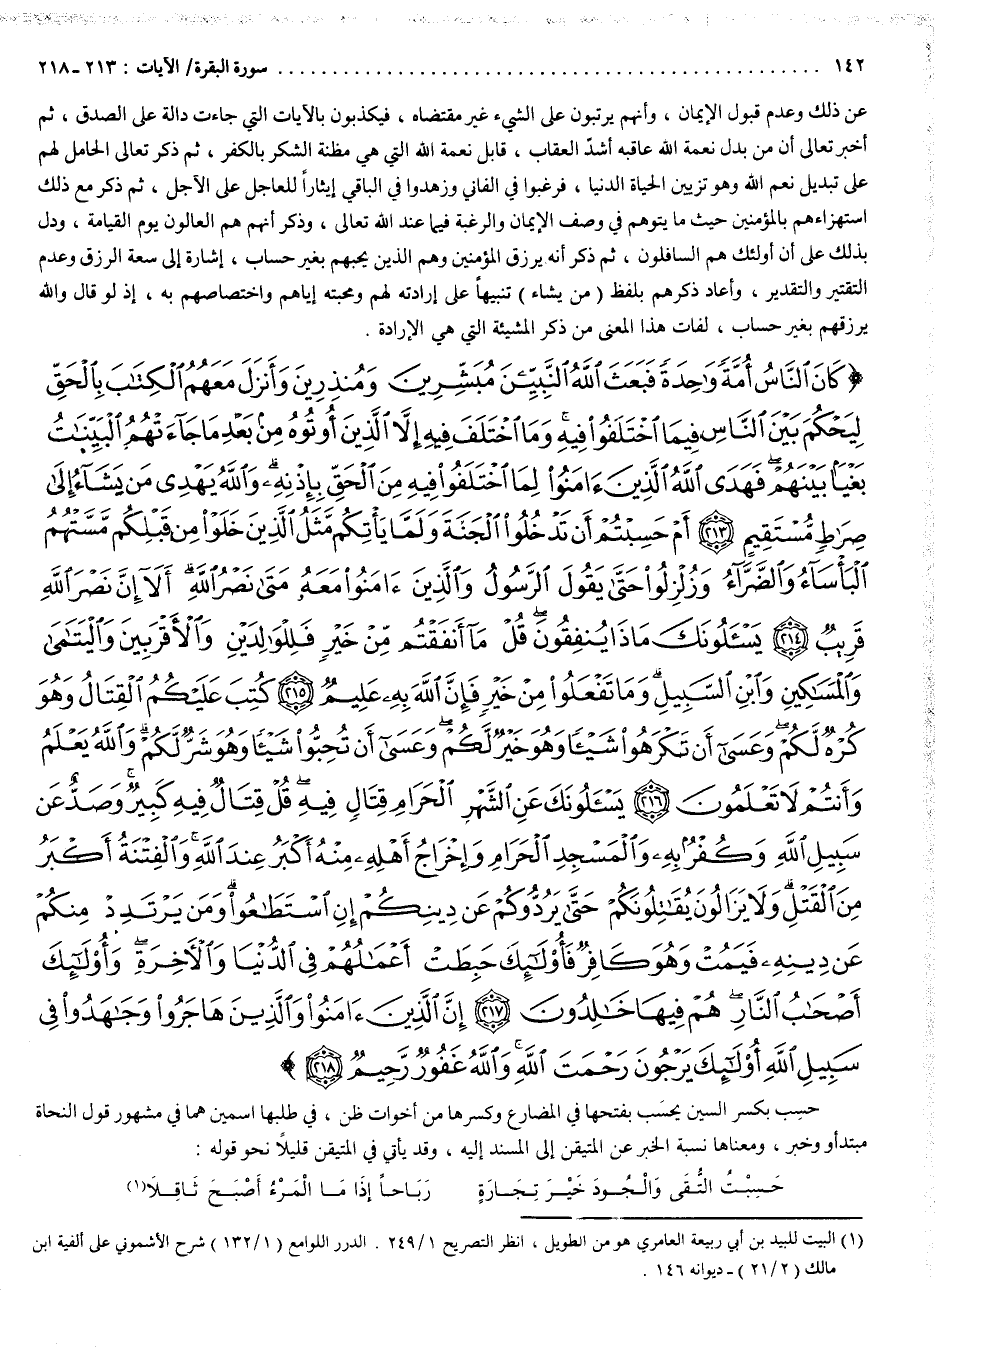 ١٤٢ . . . . . . . . . . . . . . . . . . . . . . . . . . . . . . . . . . . . . . . . . . . . . . سورة البقرة/ الآيات : ٢١٣ـ٢١٨
عن ذلك وعدم قبول الإيمان ، وأنهم يرتبون على الشيء غير مقتضاه ، فيكذبون بالآيات التي جاءت دالة على الصدق ، ثم
أخبر تعالى أن من بدل نعمة الله عاقبه أشدّ العقاب ، قابل نعمة الله التي هي مظنة الشكر بالكفر ، ثم ذكر تعالى الحامل لهم
على تبديل نعم الله وهو تزيين الحياة الدنيا ، فرغبوا في الفاني وزهدوا في الباقي إيثاراً للعاجل على الآجل ، ثم ذكر مع ذلك
استهزاءهم بالمؤمنين حيث ما يتوهم في وصف الإيمان والرغبة فيما عند الله تعالى ، وذكر أنهم هم العالون يوم القيامة ، ودل
بذلك على أن أولئك هم السافلون ، ثم ذكر أنه يرزق المؤمنين وهم الذين يحبهم بغير حساب ، إشارة إلى سعة الرزق وعدم
التقتير والتقدير ، وأعاد ذكرهم بلفظ ( من يشاء ) تنبيهاً على إرادته لهم ومحبته إياهم واختصاصهم به ، إذ لو قال والله
يرزقهم بغير حساب ، لفات هذا المعنى من ذكر المشيئة التي هي الإرادة .
﴿ كَانَ النَّاسُ أُمَّةً وَاحِدَةً فَبَعَثَ اللَّهُ النَّبِيِّـۧنَ مُبَشِّرِينَ وَمُنذِرِينَ وَأَنزَلَ مَعَهُمُ الْكِتَـٰبَ بِالْحَقِّ
لِيَحْكُمَ بَيْنَ النَّاسِ فِيمَا اخْتَلَفُوا۟ فِيهِ ۚ وَمَا اخْتَلَفَ فِيهِ إِلَّا الَّذِينَ أُوتُوهُ مِنۢ بَعْدِ مَا جَآءَتْهُمُ الْبَيِّنَـٰتُ
بَغْيًۢا بَيْنَهُمْ ۖ فَهَدَى اللَّهُ الَّذِينَ ءَامَنُوا۟ لِمَا اخْتَلَفُوا۟ فِيهِ مِنَ الْحَقِّ بِإِذْنِهِۦ ۗ وَاللَّهُ يَهْدِى مَن يَشَآءُ إِلَىٰ
صِرَٰطٍ مُّسْتَقِيمٍ ٢١٣ أَمْ حَسِبْتُمْ أَن تَدْخُلُوا۟ الْجَنَّةَ وَلَمَّا يَأْتِكُم مَّثَلُ الَّذِينَ خَلَوْا۟ مِن قَبْلِكُم مَّسَّتْهُمُ
الْبَأْسَآءُ وَالضَّرَّآءُ وَزُلْزِلُوا۟ حَتَّىٰ يَقُولَ الرَّسُولُ وَالَّذِينَ ءَامَنُوا۟ مَعَهُۥ مَتَىٰ نَصْرُ اللَّهِ ۗ أَلَآ إِنَّ نَصْرَ اللَّهِ
قَرِيبٌ ٢١٤ يَسْـَٔلُونَكَ مَاذَا يُنفِقُونَ ۖ قُلْ مَآ أَنفَقْتُم مِّنْ خَيْرٍ فَلِلْوَٰلِدَيْنِ وَالْأَقْرَبِينَ وَالْيَتَـٰمَىٰ
وَالْمَسَـٰكِينِ وَابْنِ السَّبِيلِ ۗ وَمَا تَفْعَلُوا۟ مِنْ خَيْرٍ فَإِنَّ اللَّهَ بِهِۦ عَلِيمٌ ٢١٥ كُتِبَ عَلَيْكُمُ الْقِتَالُ وَهُوَ
كُرْهٌ لَّكُمْ ۖ وَعَسَىٰٓ أَن تَكْرَهُوا۟ شَيْـًٔا وَهُوَ خَيْرٌ لَّكُمْ ۖ وَعَسَىٰٓ أَن تُحِبُّوا۟ شَيْـًٔا وَهُوَ شَرٌّ لَّكُمْ ۗ وَاللَّهُ يَعْلَمُ
وَأَنتُمْ لَا تَعْلَمُونَ ٢١٦ يَسْـَٔلُونَكَ عَنِ الشَّهْرِ الْحَرَامِ قِتَالٍ فِيهِ ۖ قُلْ قِتَالٌ فِيهِ كَبِيرٌ ۚ وَصَدٌّ عَن
سَبِيلِ اللَّهِ وَكُفْرٌۢ بِهِۦ وَالْمَسْجِدِ الْحَرَامِ وَإِخْرَاجُ أَهْلِهِۦ مِنْهُ أَكْبَرُ عِندَ اللَّهِ ۚ وَالْفِتْنَةُ أَكْبَرُ
مِنَ الْقَتْلِ ۗ وَلَا يَزَالُونَ يُقَـٰتِلُونَكُمْ حَتَّىٰ يَرُدُّوكُمْ عَن دِينِكُمْ إِنِ اسْتَطَـٰعُوا۟ ۚ وَمَن يَرْتَدِدْ مِنكُمْ
عَن دِينِهِۦ فَيَمُتْ وَهُوَ كَافِرٌ فَأُو۟لَـٰٓئِكَ حَبِطَتْ أَعْمَـٰلُهُمْ فِى الدُّنْيَا وَالْـَٔاخِرَةِ ۖ وَأُو۟لَـٰٓئِكَ
أَصْحَـٰبُ النَّارِ ۖ هُمْ فِيهَا خَـٰلِدُونَ ٢١٧ إِنَّ الَّذِينَ ءَامَنُوا۟ وَالَّذِينَ هَاجَرُوا۟ وَجَـٰهَدُوا۟ فِى
سَبِيلِ اللَّهِ أُو۟لَـٰٓئِكَ يَرْجُونَ رَحْمَتَ اللَّهِ ۚ وَاللَّهُ غَفُورٌ رَّحِيمٌ ٢١٨ ﴾
حسِب بكسر السين يحسَب بفتحها في المضارع وكسرها من أخوات ظن ، في طلبها اسمين هما في مشهور قول النحاة
مبتدأو وخبر ، ومعناها نسبة الخبر عن المتيقن إلى المسند إليه ، وقد يأتي في المتيقن قليلًا نحو قوله :
حَسِبْتُ التُّقَى وَالْجُودَ خَيْرَ تِجَارَةٍ رَبَاحاً إِذَا مَا الْمَرْءُ أَصْبَحَ ثَاقِلَا(١)
(١) البيت للبيد بن أبي ربيعة العامري هو من الطويل ، انظر التصريح ٢٤٩/١ . الدرر اللوامع ( ١٣٢/١ ) شرح الأشموني على ألفية ابن
مالك ( ٢١/٢ ) ـ ديوانه ١٤٦ .